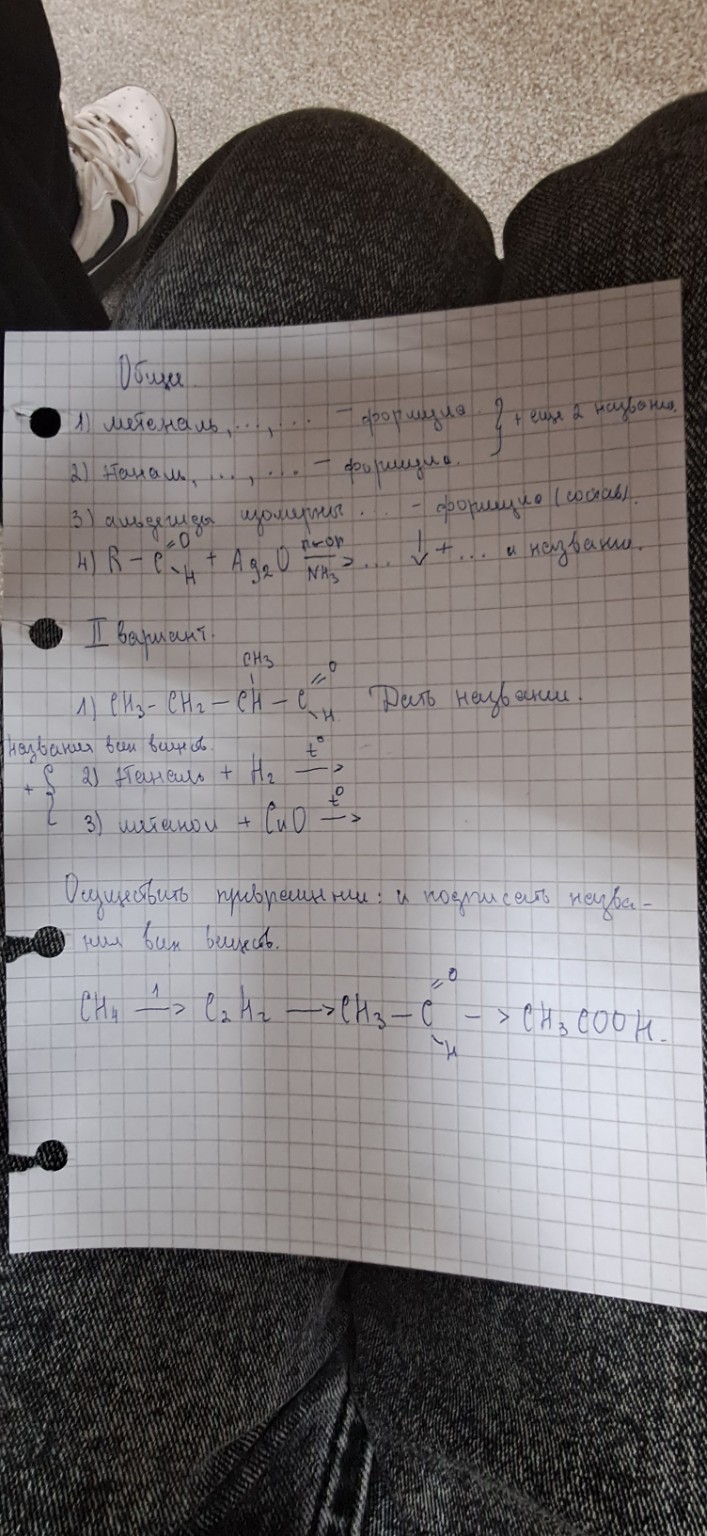 Общие.
1) метаналь, ..., ... – формула } + еще 2 названия.
2) этаналь, ..., ... – формула.
3) альдегиды изомерны ... – формула (состав).
4) R – C =O –H + Ag2O р-ор NH3 > ... ↓ + ... и названия.
II вариант.
CH3
1) CH3 – CH2 – CH – C =O –H Дать название.
Названия всех веществ.
+ { 2) этаналь + H2 t° →
3) метанол + CuO t° →
Осуществить превращения: и подписать назва-
ния всех веществ.
CH4 1→ C2H2 → CH3 – C =O –H –> CH3COOH.